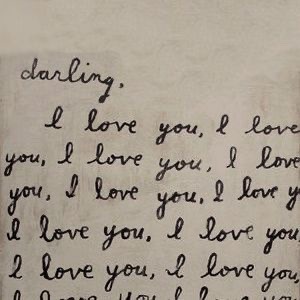 darling,
I love you, I love
you, I love you, I love
you, I love you, I love y
I love you, I love you,
I love you, I love you,